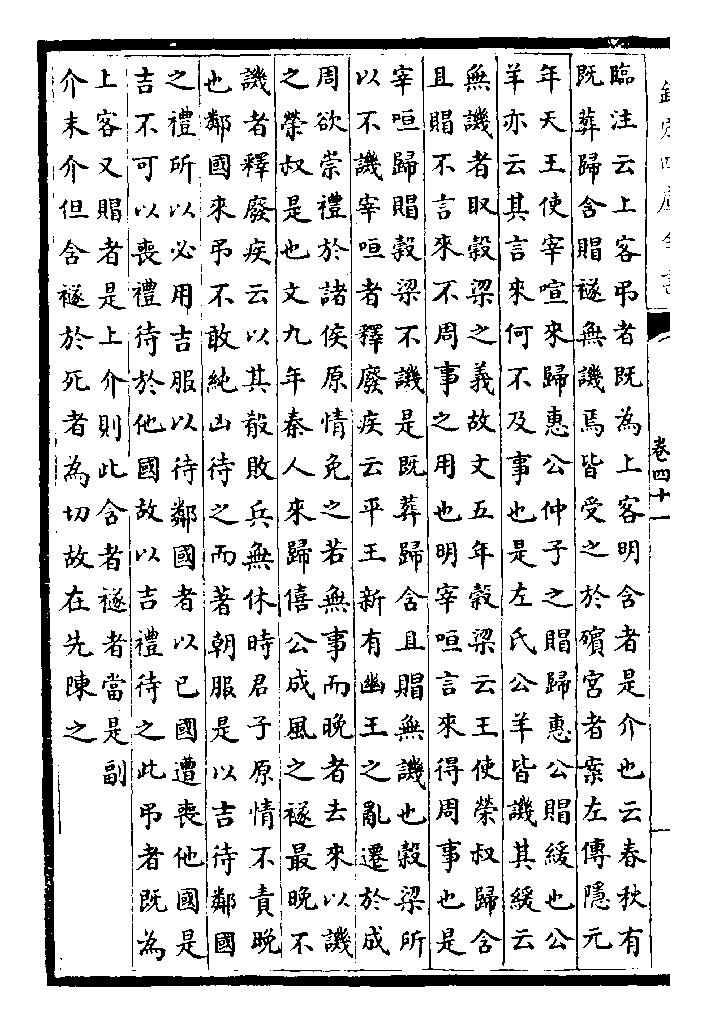 欽定四庫全書
卷四十一
臨注云上客弔者既為上客明含者是介也云春秋有
既葬歸含賵襚無譏焉皆受之於殯宮者案左傳隱元
年天王使宰喧來歸惠公仲子之賵歸惠公賵緩也公
羊亦云其言來何不及事也是左氏公羊皆譏其緩云
無譏者取穀梁之義故文五年穀梁云王使榮叔歸含
且賵不言來不周事之用也明宰咺言來得周事也是
宰咺歸賵穀梁不譏是既葬歸含且賵無譏也穀梁所
以不譏宰咺者釋廢疾云平王新有幽王之亂遷於成
周欲崇禮於諸侯原情免之若無事而晚者去來以譏
之榮叔是也文九年秦人來歸僖公成風之襚最晚不
譏者釋廢疾云以其殽敗兵無休時君子原情不責晚
也鄰國來弔不敢純凶待之而著朝服是以吉待鄰國
之禮所以必用吉服以待鄰國者以已國遭喪他國是
吉不可以喪禮待於他國故以吉禮待之此弔者既為
上客又賵者是上介則此含者襚者當是副
介末介但含襚於死者為切故在先陳之